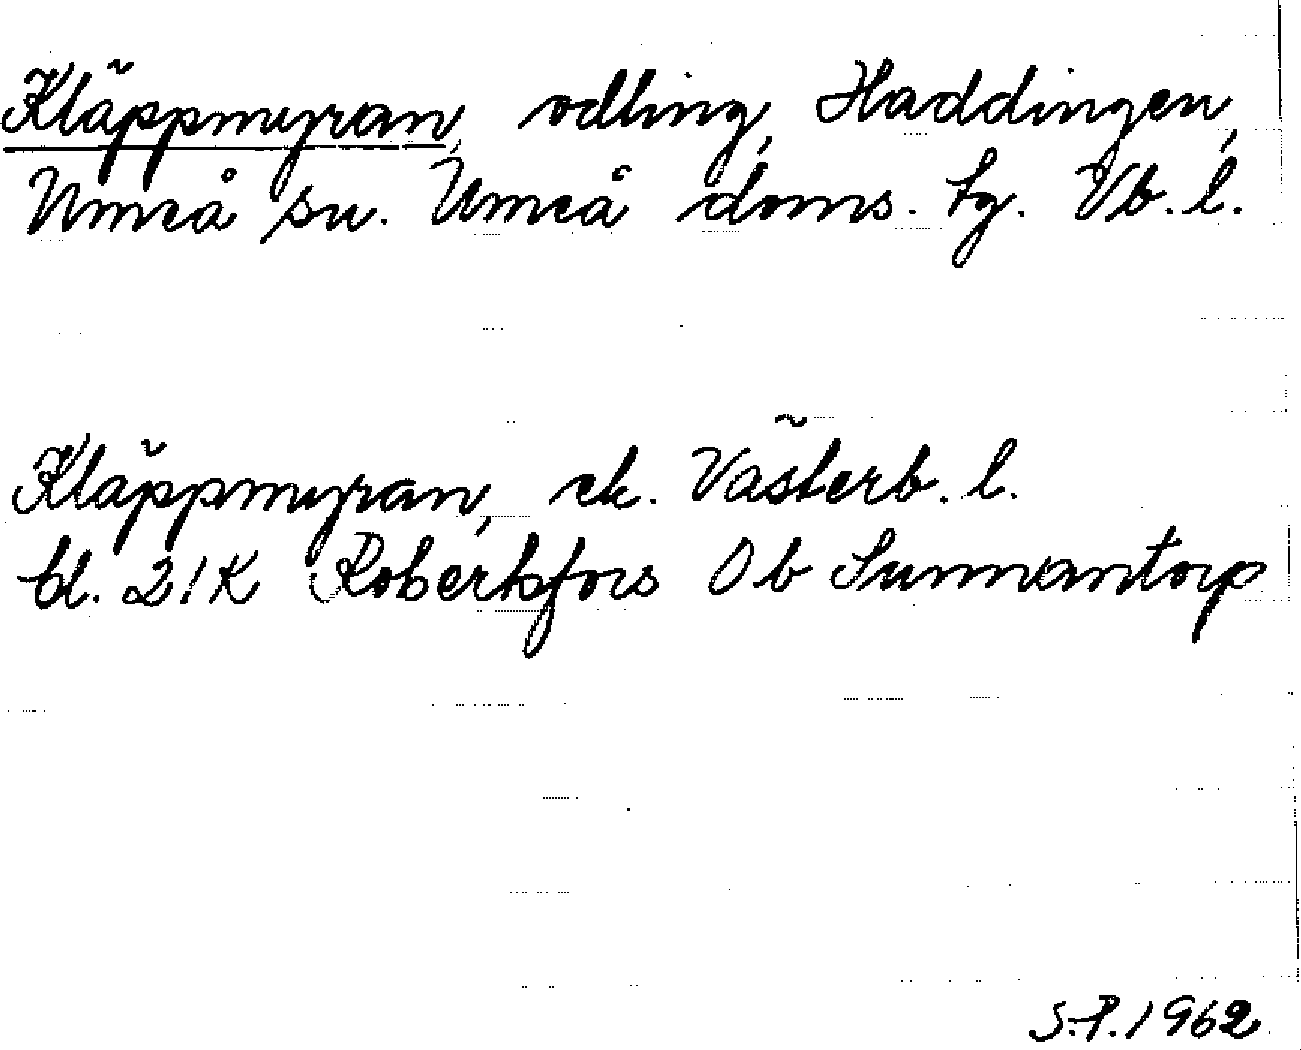 Kläppmyran, odling, Haddingen,
Umeå sn. Umeå doms. tg. Vb. l.
Kläppmyran, ek. Västerb. l.
bl. 21K Robertsfors 0b Sunnantorp
S.P. 1962